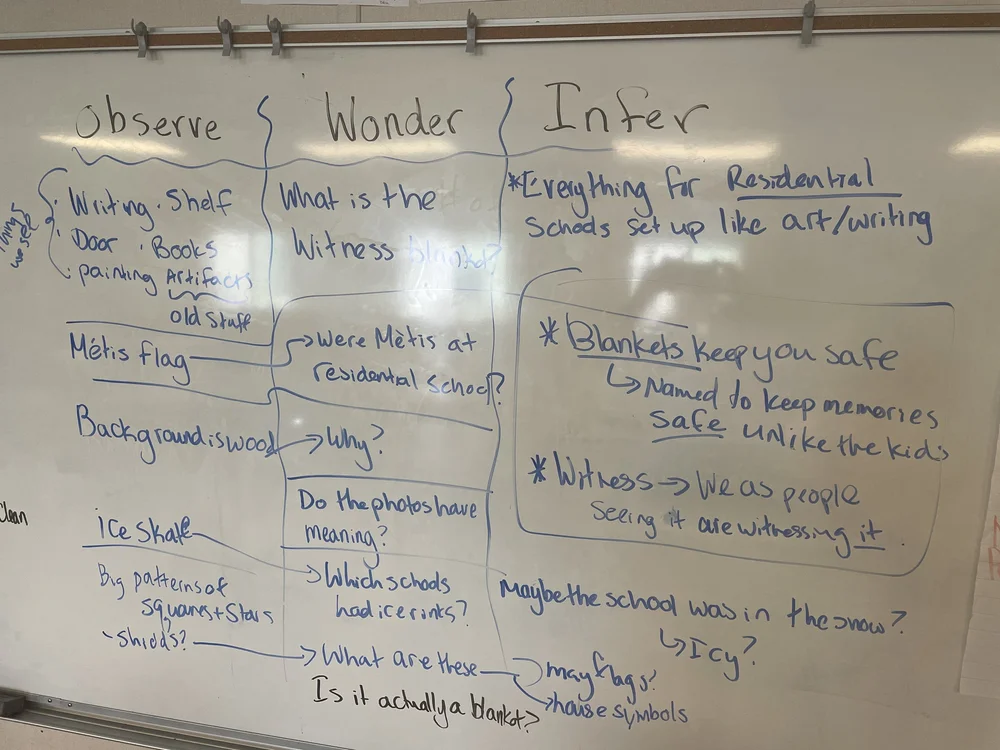 Observe
Things we see
Writing · Shelf
· Door · Books
· painting Artifacts
old stuff
Métis flag
Background is wood
ice skate
Big patterns of
squares + stars
- shields?
Clean
Wonder
What is the
Witness blanket?
Were Mètis at
residential school?
Why?
Do the photos have
meaning?
Which schools
had ice rinks?
What are these
Is it actually a blanket?
Infer
*Everything for Residential
Schools set up like art/writing
* Blankets keep you safe
Named to keep memories
safe unlike the kids
* Witness → We as people
seeing it are witnessing it.
Maybe the school was in the snow?
Icy?
may flags?
house symbols